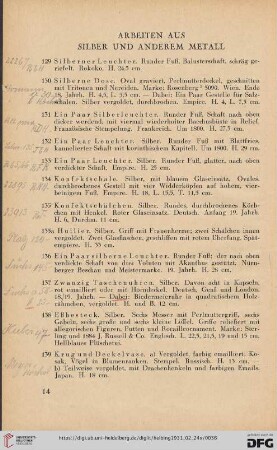 ARBEITEN AUS
SILBER UND ANDEREM METALL
129 Silberner Leuchter. Runder Fuß, Balusterschaft, schräg ge-
rieft. Rokoko. H. 24,5 cm
130 Silberne Dose. Oval graviert, Perlmutterdeckel, geschnitten
mit Tritonen und Nereiden. Marke: Rosenberg
18. Jahrh. H. 4,5, L. cm — Dabei: Ein Paar Gestelle für Salz-
schalen. Silber vergoldet, durchbrochen. Empire. H. 4, L. 7,5 cm
131 Ein Paar Silberleuchter. Runder Fuß. Schaft nach oben
dicker werdend mit viermal wiederholter Bacchusbüste in Relief.
Französische Stempelung. Frankreich. Um 1800. H. 27,5 cm
132 Ein Paar Leuchter. Silber. Runder Fuß mit Blattfries,
kannelierter Schaft mit korinthischem Kapitell. Um 1800. H. 29 cm
133 Ein Paar Leuchter. Silber. Runder Fuß, glatter, nach oben
verdickter Schaft. Empire. H. 25 cm
134 Konfektschale. Silber, mit blauem Glaseinsatz. Ovales,
durchbrochenes Gestell mit vier Widderköpfen auf hohem, vier-
beinigem Fuß. Empire. H. 18, L. 19,5, T. 14,5 cm
135 Konfektschälchen. Silber. Rundes, durchbrochenes Körb-
chen mit Henkel. Roter Glaseinsatz. Deutsch. Anfang 19. Jahrh.
H. 6, Durchm. 11 cm
135a Huilier. Silber. Griff mit Frauenherme; zwei Schälchen innen
vergoldet. Zwei Glasflaschen, geschliffen mit rotem Überfang. Spät-
empire. H. 35 cm
136 Ein Paar silberne Leuchter. Runder Fuß; der nach oben
verdickte Schaft von drei Tolosten mit Akanthus gestützt. Nürn-
berger Beschau und Meistermarke. 19. Jahrh. H. 26 cm
137 Zwanzig Taschenuhren. Silber. Davon acht in Kapseln,
erst emailliert oder mit Horndeckel. Deutsch, Genf und London.
18./19. Jahrh. — Dabei: Biedermeieruhr in quadratischem Holz-
rähmchen, vergoldet. H. und B. 12 cm
138 Eßbesteck. Silber. Sechs Messer mit Perlmuttergriff, sechs
Gabeln, sechs große und sechs kleine Löffel. Griffe reliefiert mit
allegorischen Figuren, Putten und Rocailleornament. Marke: Ster-
ling und 1884 J. Russell & Co. Engl. L. 22,5, 21,5, 19 und 15 cm
Hellblauer Plüschetui.
139 Krug und Deckelvase. a) Vergoldet, farbig emailliert. Ko-
sak, Vögel in Blumenranken. Stempel. Russisch. H. 13 cm —
b) Teilweise vergoldet, mit Drachenhenkeln und farbigen Emails.
Japan. H. 18 cm
14
http://digi.ub.uni-heidelberg.de/diglit/helbing1931_02_24a/0036
© Universitätsbibliothek Heidelberg
gefördert durch die
DFG